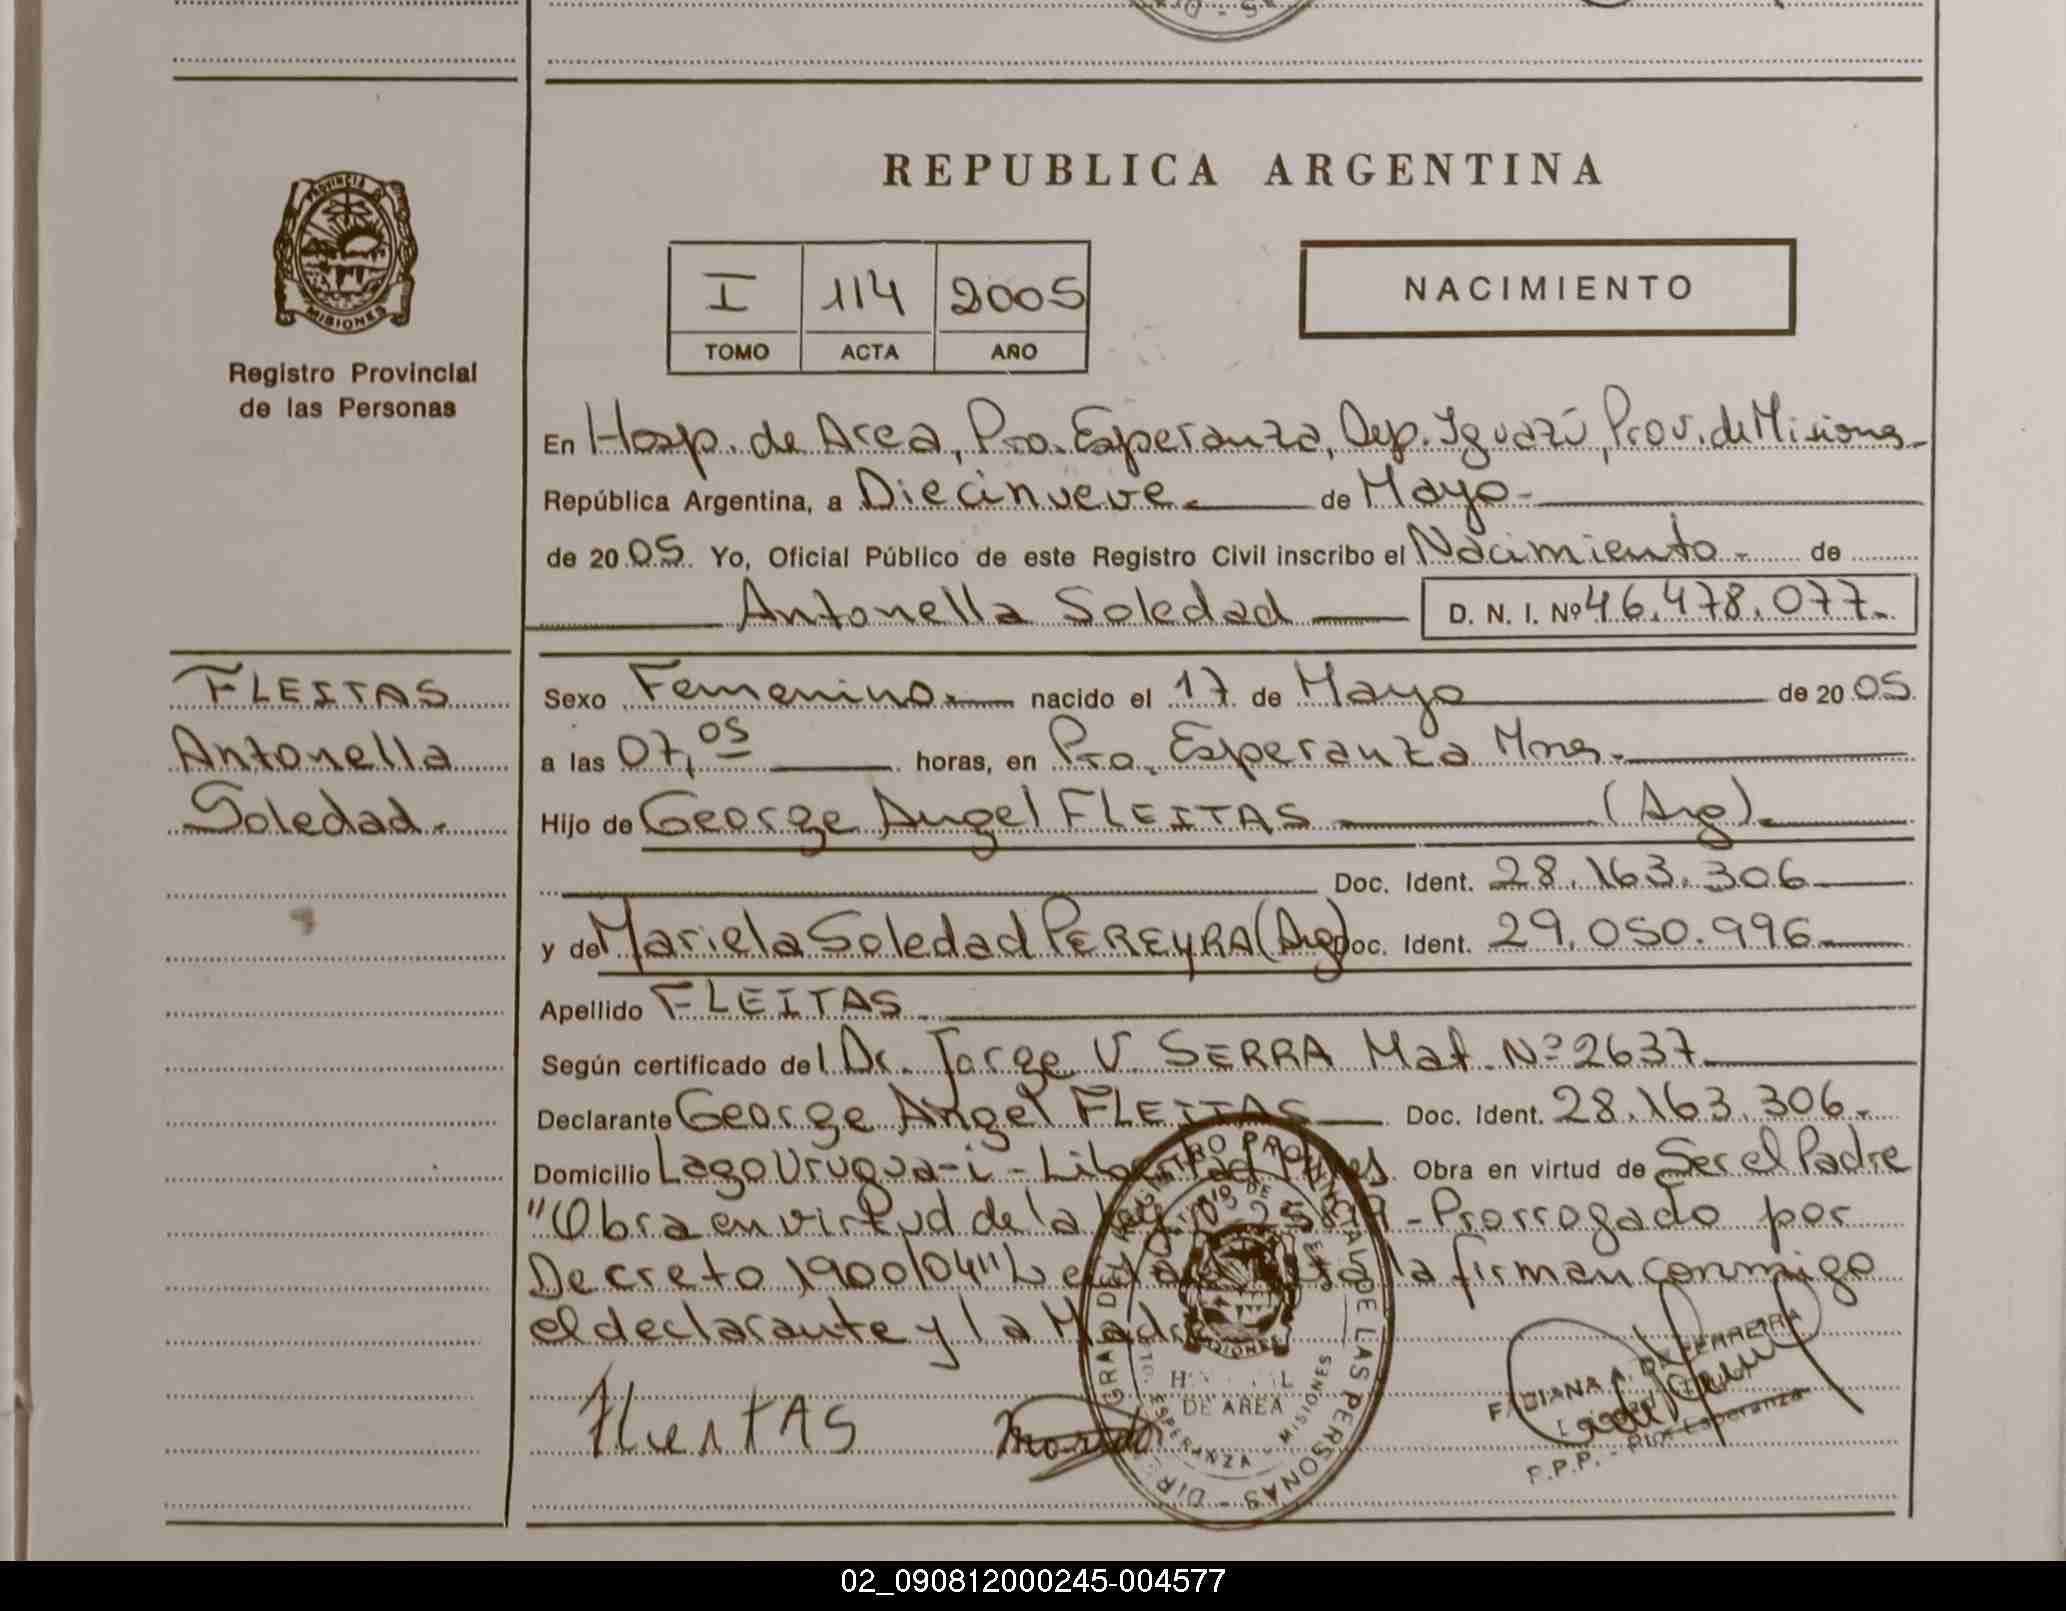 REPUBLICA ARGENTINA
PROVINCIA DE
MISIONES
Registro Provincial
de las Personas
I 114 2005
TOMO ACTA AÑO
NACIMIENTO
En Hosp. de Area, Pto. Esperanza, Dep. Iguazú, Prov. de Misiones-
República Argentina, a Diecinueve. de Mayo-
de 20 05. Yo, Oficial Público de este Registro Civil inscribo el Nacimiento - de
Antonella Soledad D. N. I. Nº 46.478.077.-
FLEITAS
Antonella
Soledad.-
Sexo Femenino.- nacido el 17 de Mayo de 20 05.
a las 07,05 horas, en Pto. Esperanza Mnes.-
Hijo de George Angel FLEITAS (Arg).-
Doc. Ident. 28.163.306
y de Mariela Soledad PEREYRA (Arg) Doc. Ident. 29.050.996.-
Apellido FLEITAS.
Según certificado del Dr. Jorge V. SERRA Mat. Nº 2637.
Declarante George Angel FLEITAS Doc. Ident. 28.163.306.-
Domicilio Lago Urugua-i - Libertad Mnes. Obra en virtud de Ser el Padre
"Obra en virtud de la Ley Nº 25819 - Prorrogado por
Decreto 1900/04" Leyda el acta, la firman conmigo
el declarante y la Madre
FleitAS
DIR. GRAL. DEL REGISTRO PROVINCIAL DE LAS PERSONAS
MISIONES
HOSPITAL
DE AREA
PTO. ESPERANZA - MISIONES
FABIANA A. DE FERREIRA
P.P.P. - Pto. Esperanza
02_090812000245-004577